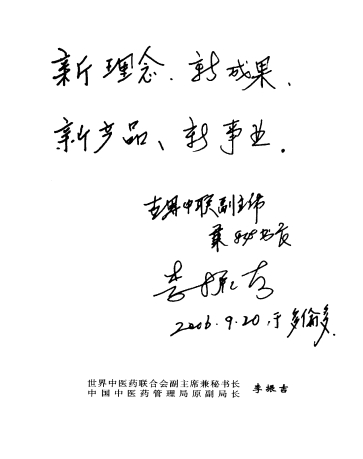 新理念、新成果、
新产品、新事业。
世界中联副主席
兼秘书长
李振吉
2006.9.20,于多伦多.
世界中医药联合会副主席兼秘书长
中国中医药管理局原副局长
李振吉